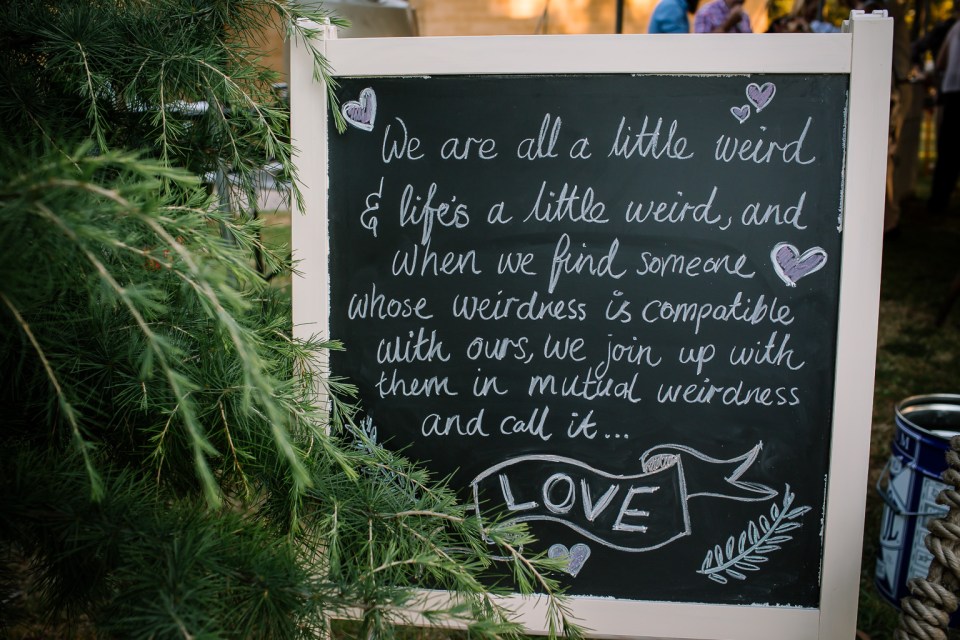 We are all a little weird
& life's a little weird, and
when we find someone
whose weirdness is compatible
with ours, we join up with
them in mutual weirdness
and call it...
LOVE